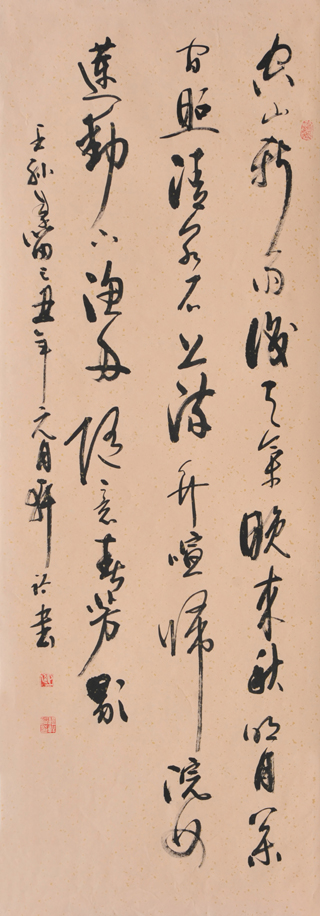 空山新雨後天氣晚来秋明月松
間照清泉石上流竹喧歸浣女
蓮動下漁舟随意春芳歇
王孫自可留己丑年元月书